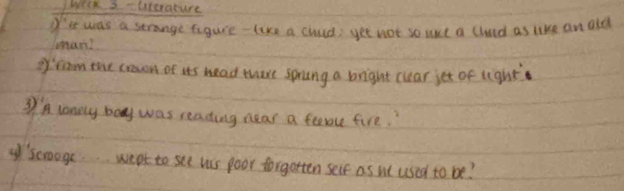 Week 3 - Literature
1) 'it was a strange figure - like a child: yet not so like a child as like an old
man'
2) 'from the crown of its head there sprung a bright clear jet of light'.
3) 'A lonely boy was reading near a feeble fire.'
4) 'Scrooge ... wept to see his poor forgotten self as he used to be'